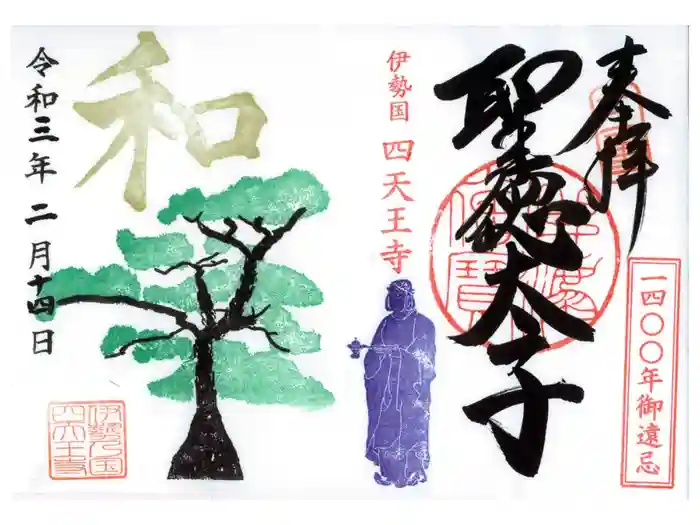 奉拝
一四〇〇年御遠忌
聖徳太子
伊勢国 四天王寺
和
令和三年 二月十四日
伊勢之国
四天王寺